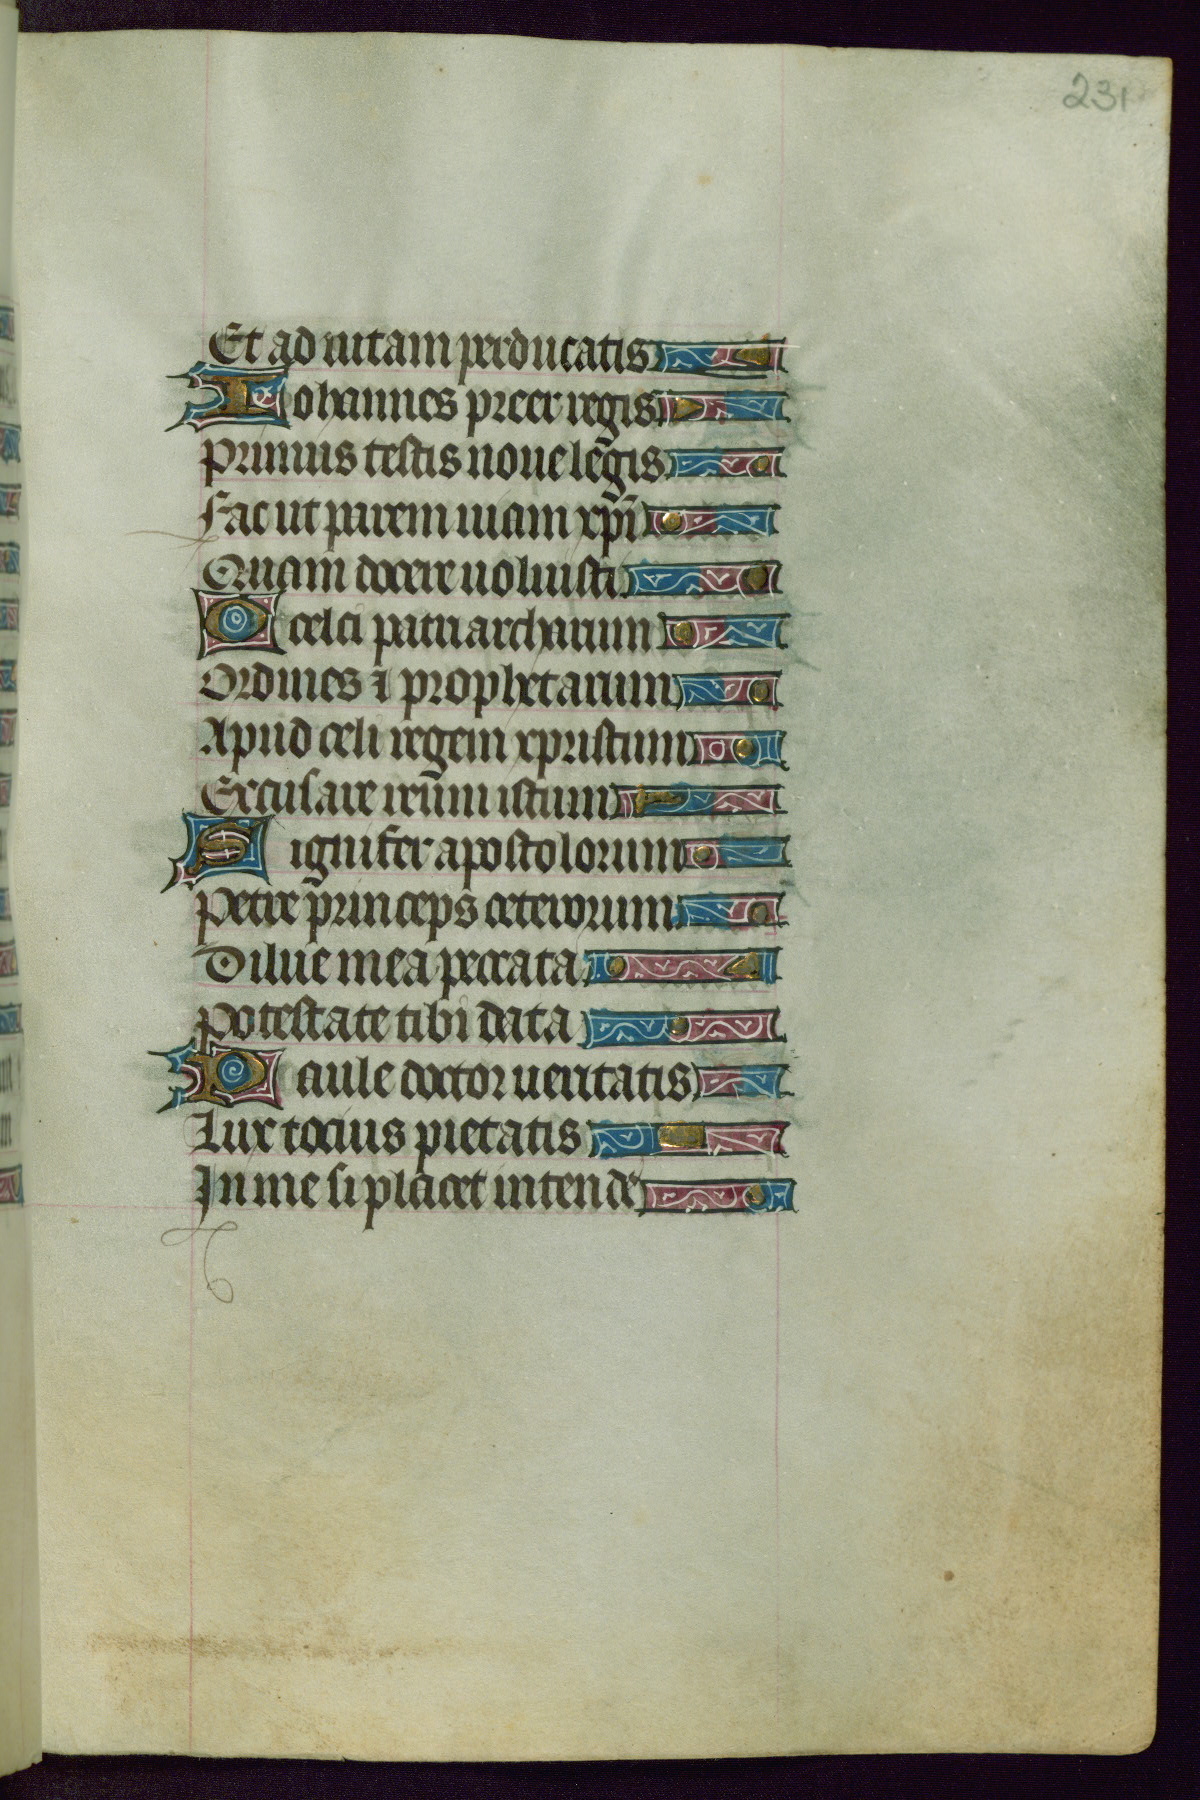 231
Et ad uitam perducatis
Iohannes precer regis
Primus testis noue lēgis
Fac ut purem uiam xp̄i
Quam docere uoluisti
O celci patriarcharum
Ordines ⁊ prophetarum
Apud celi regem xpristum
Excusare reū̄m istum
Signifer apostolorum
Petre princeps ceterorum
Dilue mea peccata
Potestate tibi data
Paule doctor ueritatis
Lux tocius pietatis
In me si placet intende